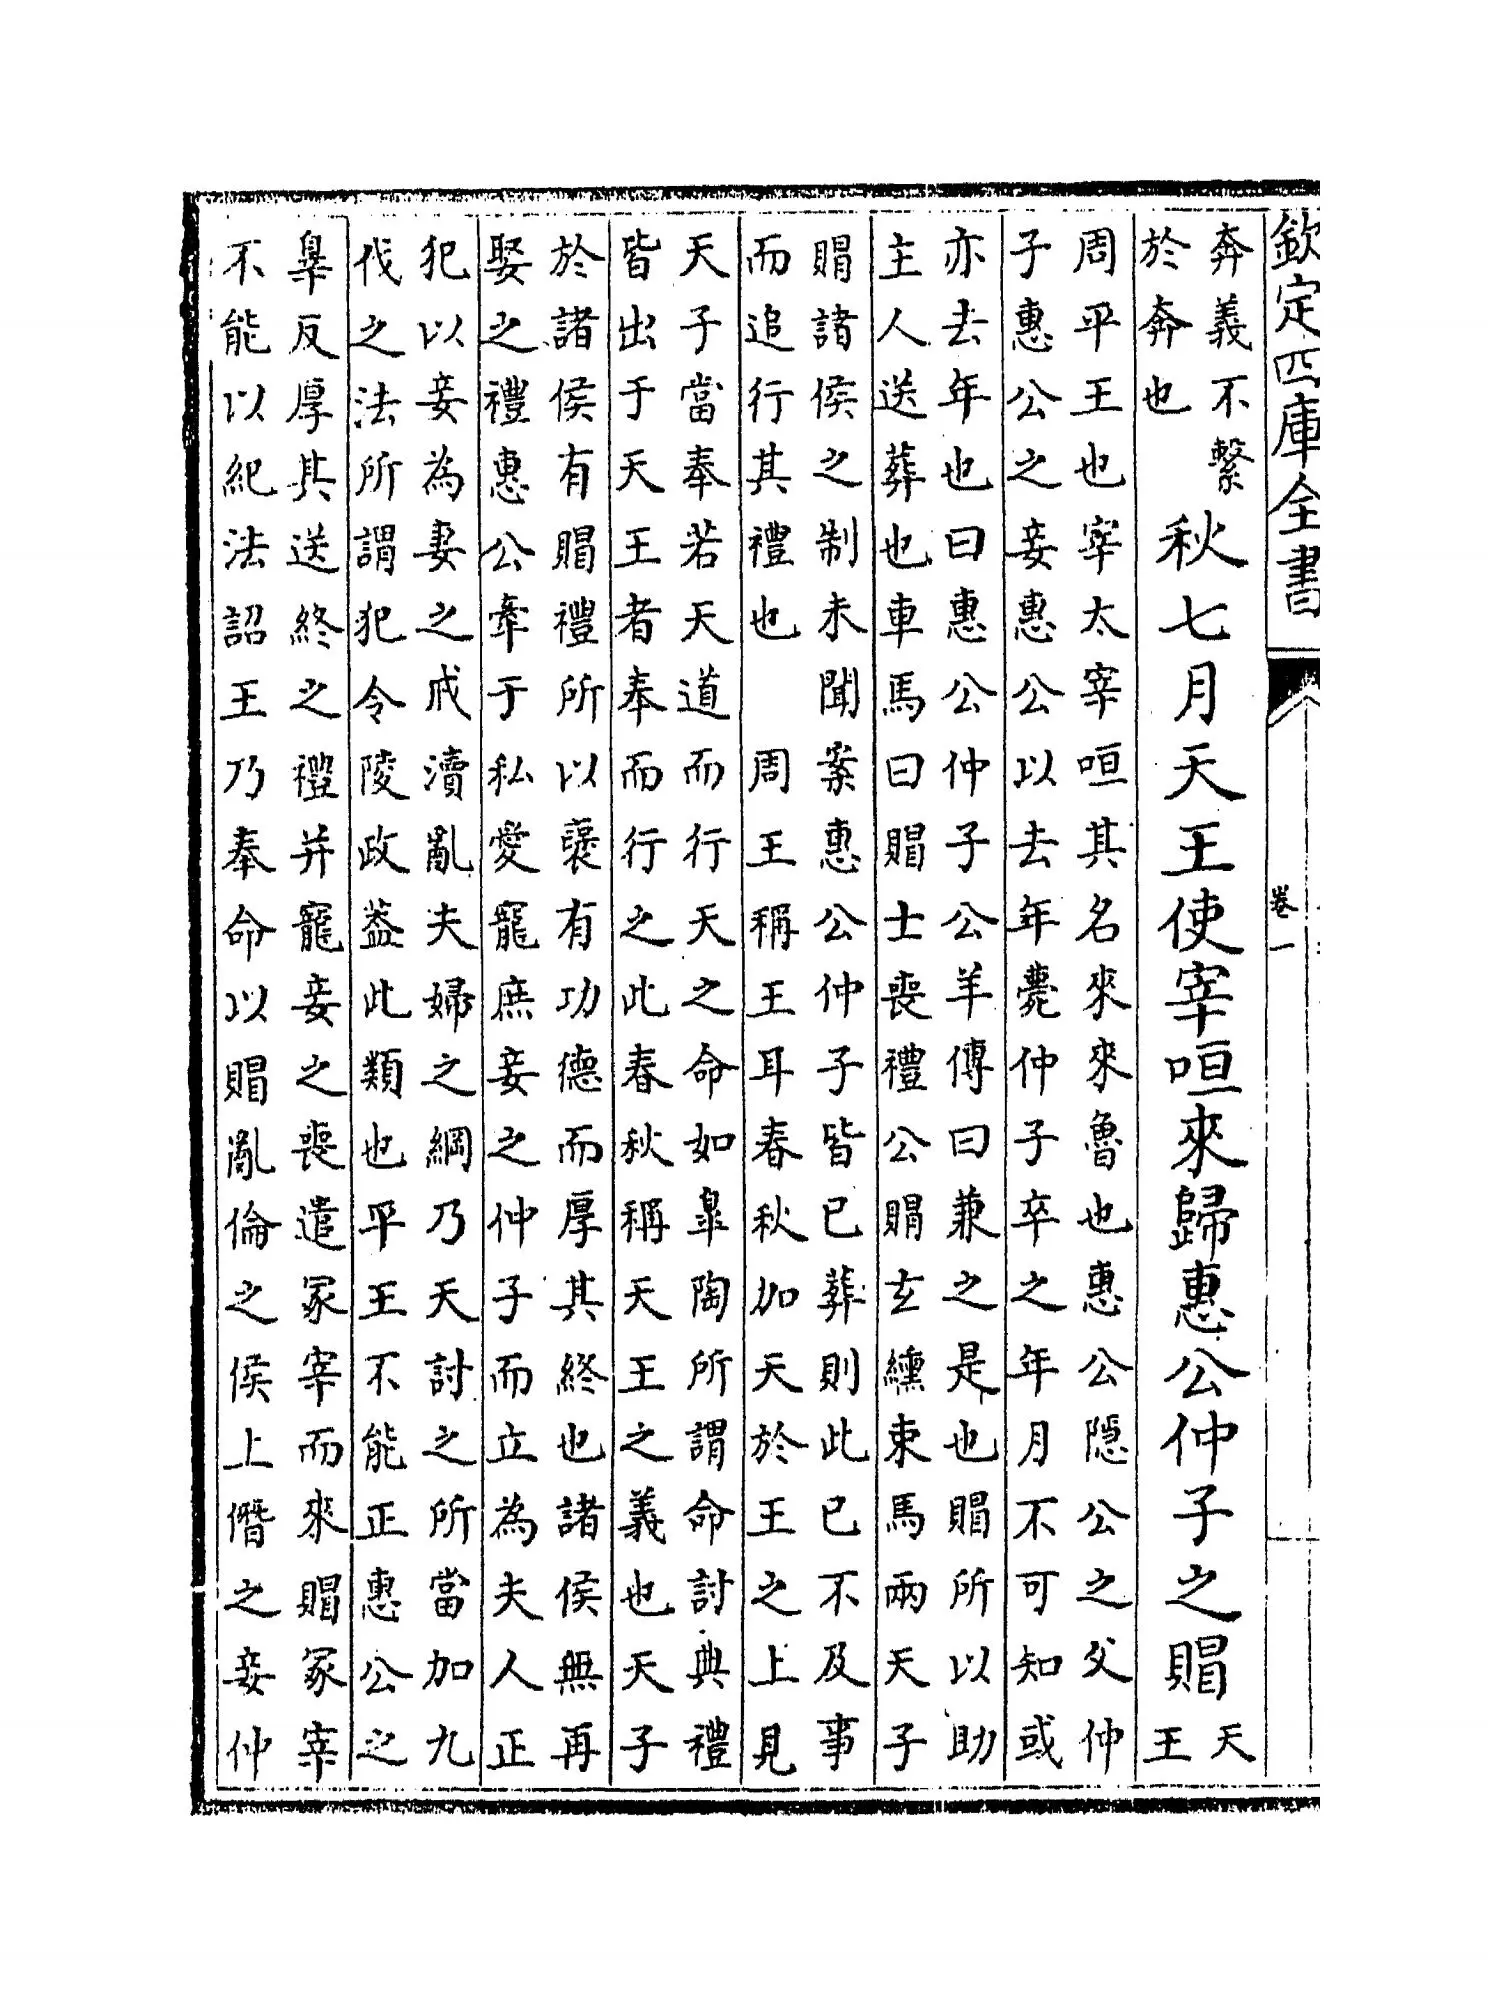 欽定四庫全書
卷一
奔義不繫
於奔也
秋七月天王使宰咺來歸惠公仲子之賵
天
王
周平王也宰太宰咺其名來來魯也惠公隱公之父仲
子惠公之妾惠公以去年薨仲子卒之年月不可知或
亦去年也曰惠公仲子公羊傳曰兼之是也賵所以助
主人送葬也車馬曰賵士喪禮公賵玄纁束馬兩天子
賵諸侯之制未聞案惠公仲子皆已葬則此已不及事
而追行其禮也　周王稱王耳春秋加天於王之上見
天子當奉若天道而行天之命如皐陶所謂命討典禮
皆出于天王者奉而行之此春秋稱天王之義也天子
於諸侯有賵禮所以襃有功德而厚其終也諸侯無再
娶之禮惠公牽于私愛寵庶妾之仲子而立為夫人正
犯以妾為妻之戒瀆亂夫婦之綱乃天討之所當加九
伐之法所謂犯令陵政葢此類也平王不能正惠公之
辠反厚其送終之禮并寵妾之喪遣冢宰而來賵冢宰
不能以紀法詔王乃奉命以賵亂倫之侯上僭之妾仲